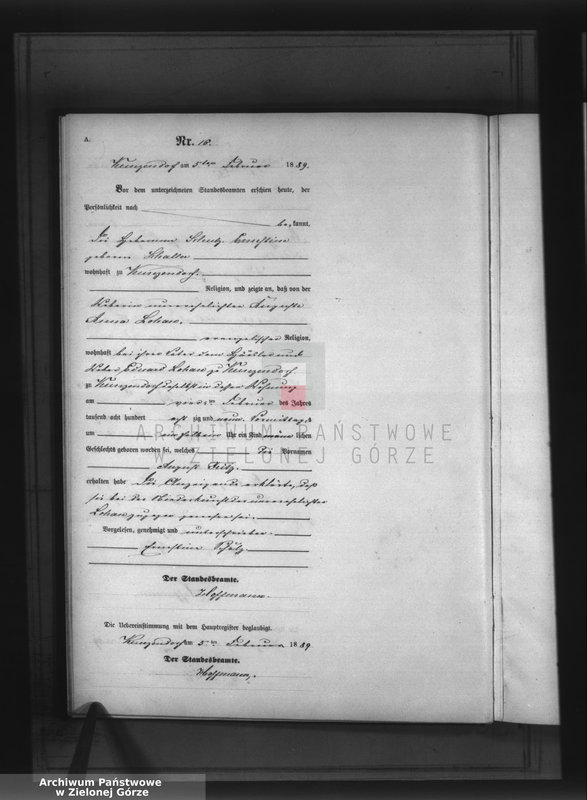 A.
Nr. 16.
Kunzendorf am 5ten Februar 1889.
Vor dem unterzeichneten Standesbeamten erschien heute, der
Persönlichkeit nach
be kannt,
Die Hebamme Ernestine
geborne
wohnhaft zu Kunzendorf.
Religion, und zeigte an, daß von der
Weberin unverehelichten Auguste
Anna
evangelischer Religion,
wohnhaft bei ihrem Vater dem Häusler und
Weber Eduard zu Kunzendorf
zu Kunzendorf daselbst in dessen Wohnung
am Februar des Jahres
tausend acht hundert acht zig und neun Vormittags
um Uhr ein Kind männ lichen
Geschlechts geboren worden sei, welches die Vornamen
August Fritz
erhalten habe Die Anzeigende erklärte, daß
sie bei der Niederkunft der unverehelichten
zugegen gewesen sei.
Vorgelesen, genehmigt und unterschrieben.
Ernestine
Der Standesbeamte.
Hoffmann.
Die Uebereinstimmung mit dem Hauptregister beglaubigt.
Kunzendorf am 5ten Februar 1889
Der Standesbeamte.
Hoffmann.
ARCHIWUM PAŃSTWOWE
W ZIELONEJ GÓRZE
Archiwum Państwowe
w Zielonej Górze